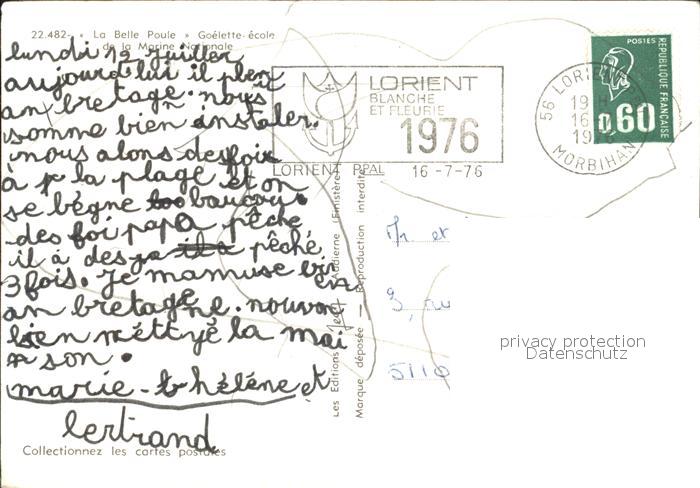 22.482- « La Belle Poule » Goélette-école
de la Marine Nationale
lundi 12 juillet
aujourd lui il pleu
an bretage. nous
somme bien installer.
nous alons des foix
à la plage et on
se bégne baucous.
des foi papa pêche
il à des ja pêché
3 fois. Je mamuse bien
an bretagne. nouvon
bien néttyé la mai
son.
marie-thélène et
bertrand
Collectionnez les cartes postales
Les Editions Jean Audierne (Finistère)
Marque déposée — Reproduction interdite
LORIENT
BLANCHE
ET FLEURIE
1976
LORIENT PPAL 16-7-76
56 LORIENT
19 H
16
19
MORBIHAN
POSTES
REPUBLIQUE FRANÇAISE
0,60
et
5110
privacy protection
Datenschutz